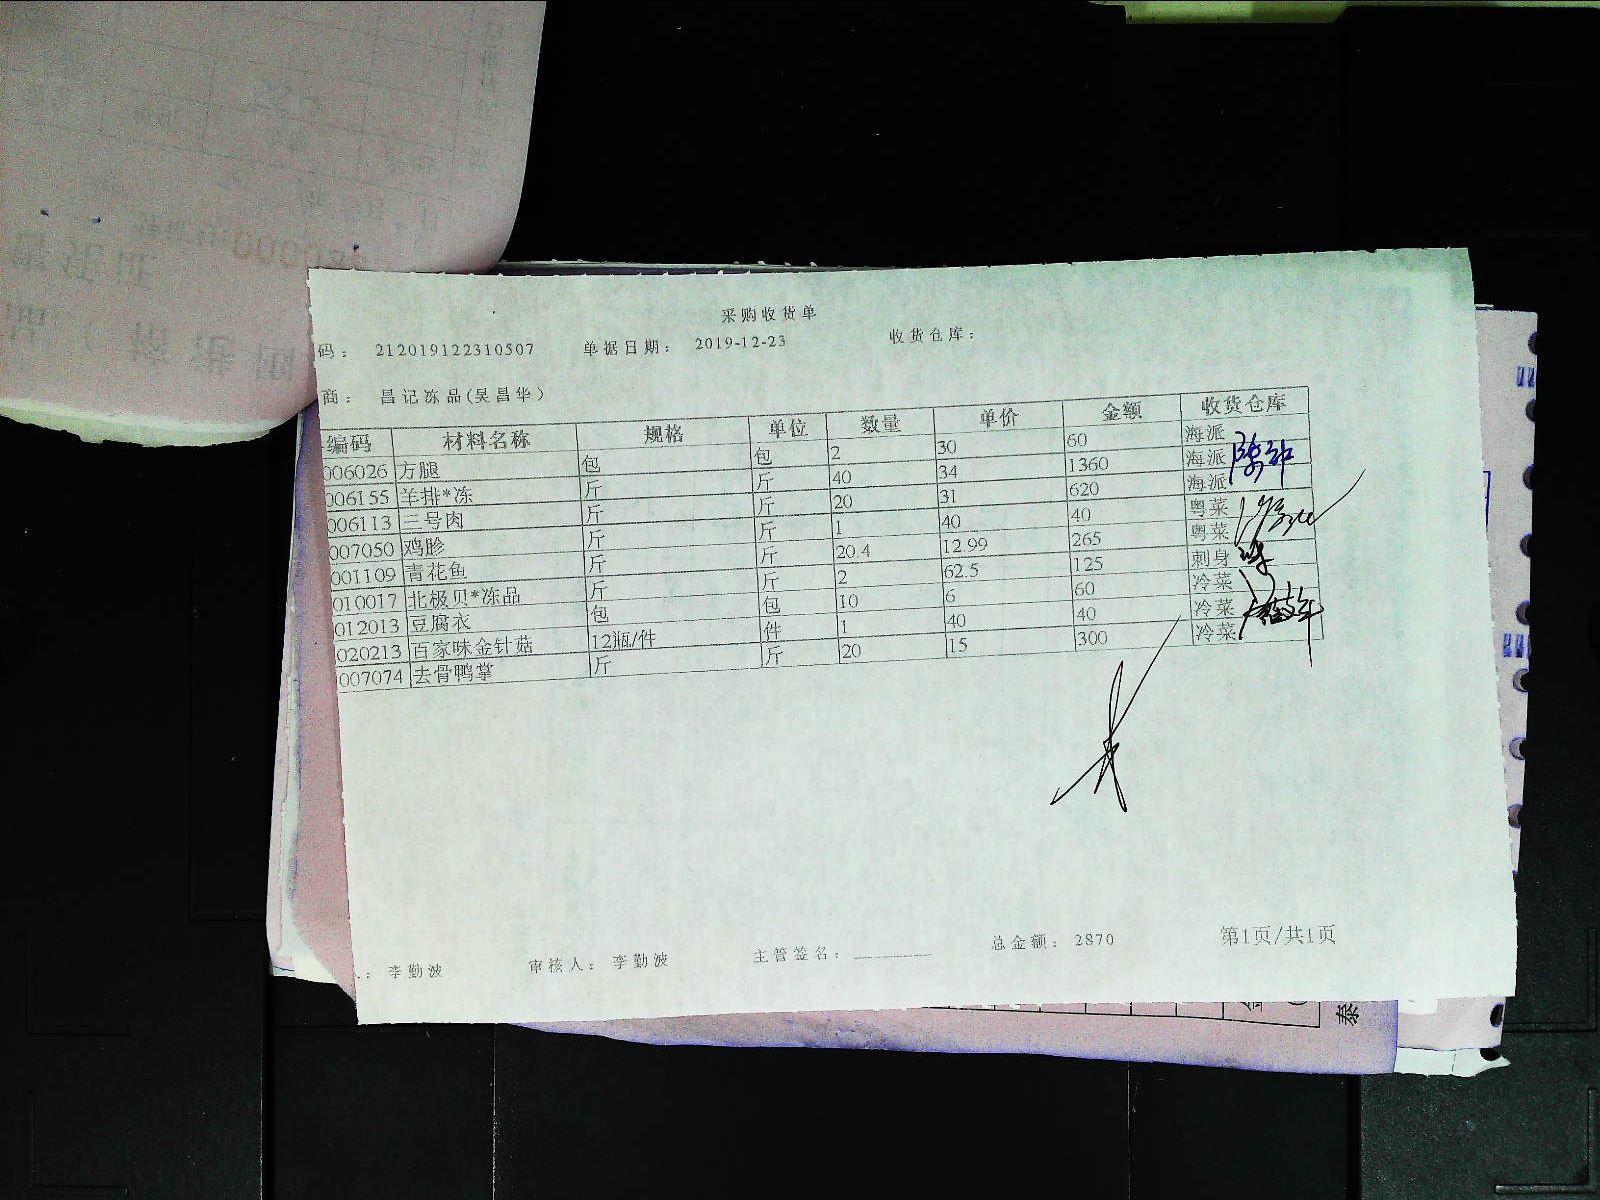 采购收货单
码： 212019122310507 单据日期： 2019-12-23 收货仓库：
商： 昌记冻品(吴昌华)
编码 材料名称 规格 单位 数量 单价 金额 收货仓库
006026 方腿 包 包 2 30 60 海派
006155 羊排*冻 斤 斤 40 34 1360 海派
006113 三号肉 斤 斤 20 31 620 海派
007050 鸡胗 斤 斤 1 40 40 粤菜
001109 青花鱼 斤 斤 20.4 12.99 265 粤菜
010017 北极贝*冻品 斤 斤 2 62.5 125 刺身
012013 豆腐衣 包 包 10 6 60 冷菜
020213 百家味金针菇 12瓶/件 件 1 40 40 冷菜
007074 去骨鸭掌 斤 斤 20 15 300 冷菜
： 李勤波 审核人： 李勤波 主管签名： 总金额： 2870 第1页/共1页
泰